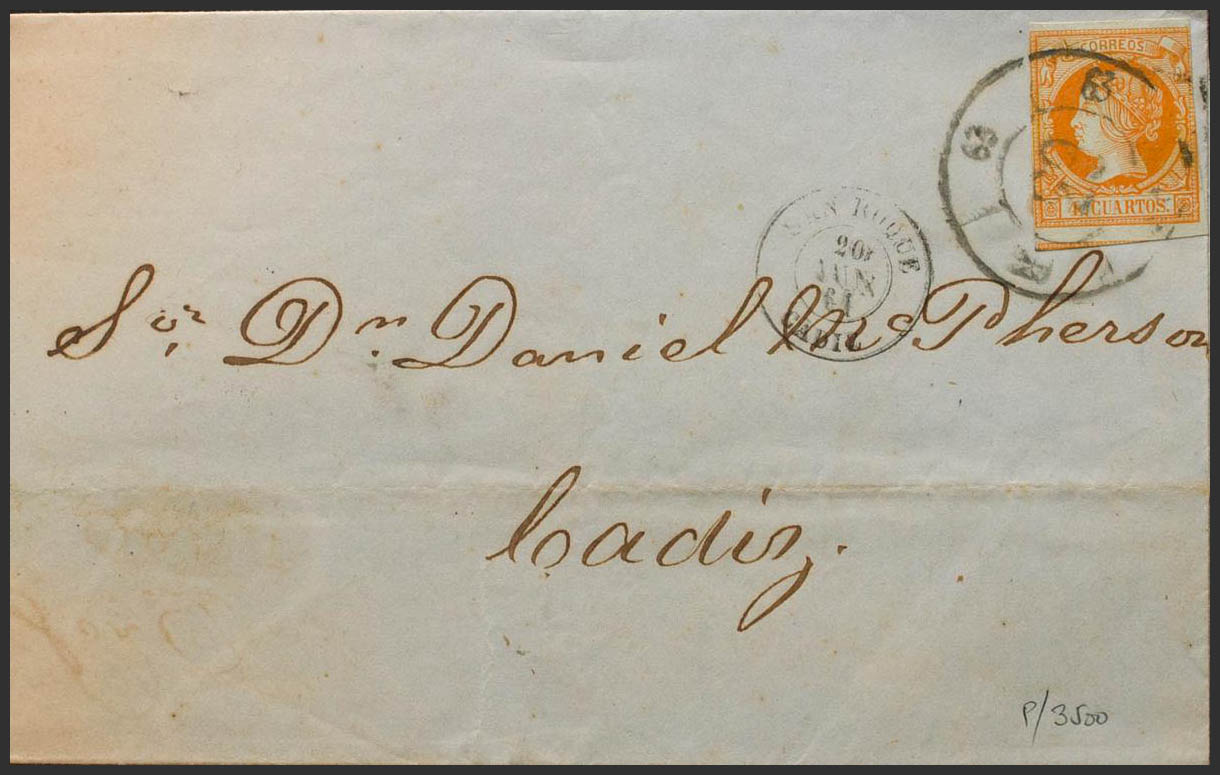 CORREOS
4 CUARTOS.
SAN ROQUE
20
JUN
61
CADIZ
Sor. Dn. Daniel McPherson
Cadiz.
P/3500